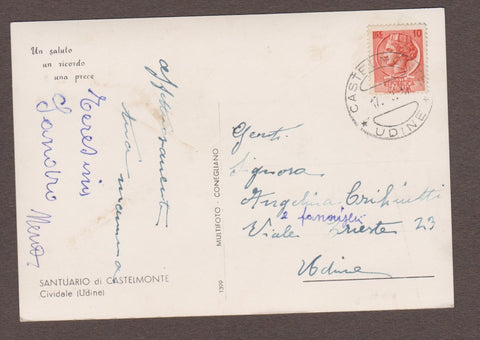 Un saluto
un ricordo
una prece
affettuosamente
tua mamma
Teresina
Sandro
SANTUARIO di CASTELMONTE
Cividale (Udine)
1399
MULTIFOTO - CONEGLIANO
10
UDINE
Gent.
Signora
Angelina
e famiglia
Viale Trieste 23
Udine